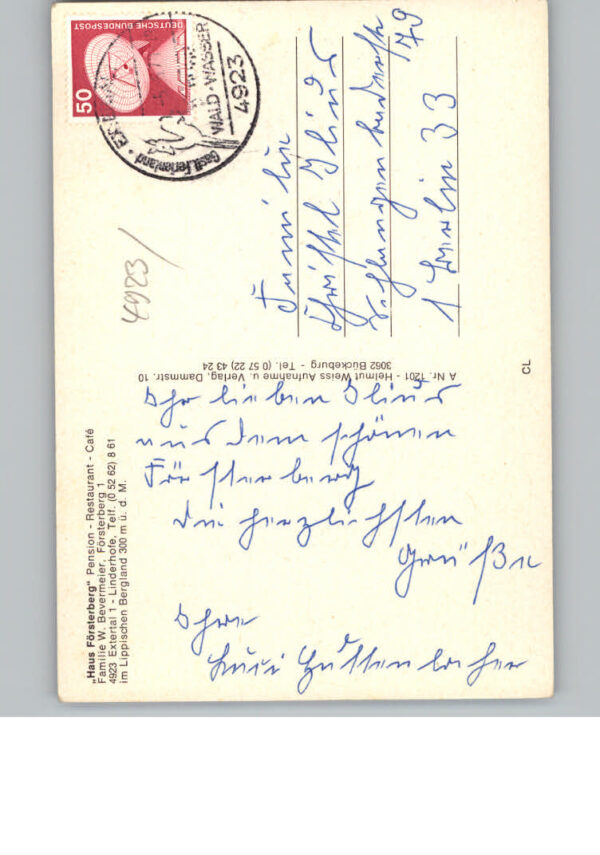 „Haus Försterberg" Pension - Restaurant - Café
Familie W. Bevermeier, Försterberg 1
4923 Extertal 1 - Linderhofe, Telf. (0 52 62) 8 61
im Lippischen Bergland 300 m ü. d. M.
Ihr lieben Ilius
aus dem schönen
Försterberg
die herzlichsten
Grüße
Ihre
Huttenlocher
A Nr. 1201 - Helmut Weiss Aufnahme u. Verlag, Dammstr. 10
3062 Bückeburg - Tel. (0 57 22) 43 24
CL
4923/
DEUTSCHE BUNDESPOST
50
WALD·WASSER
4923
Gastl. Ferienland
Familie
Christel Ilius
79
1 Berlin 33